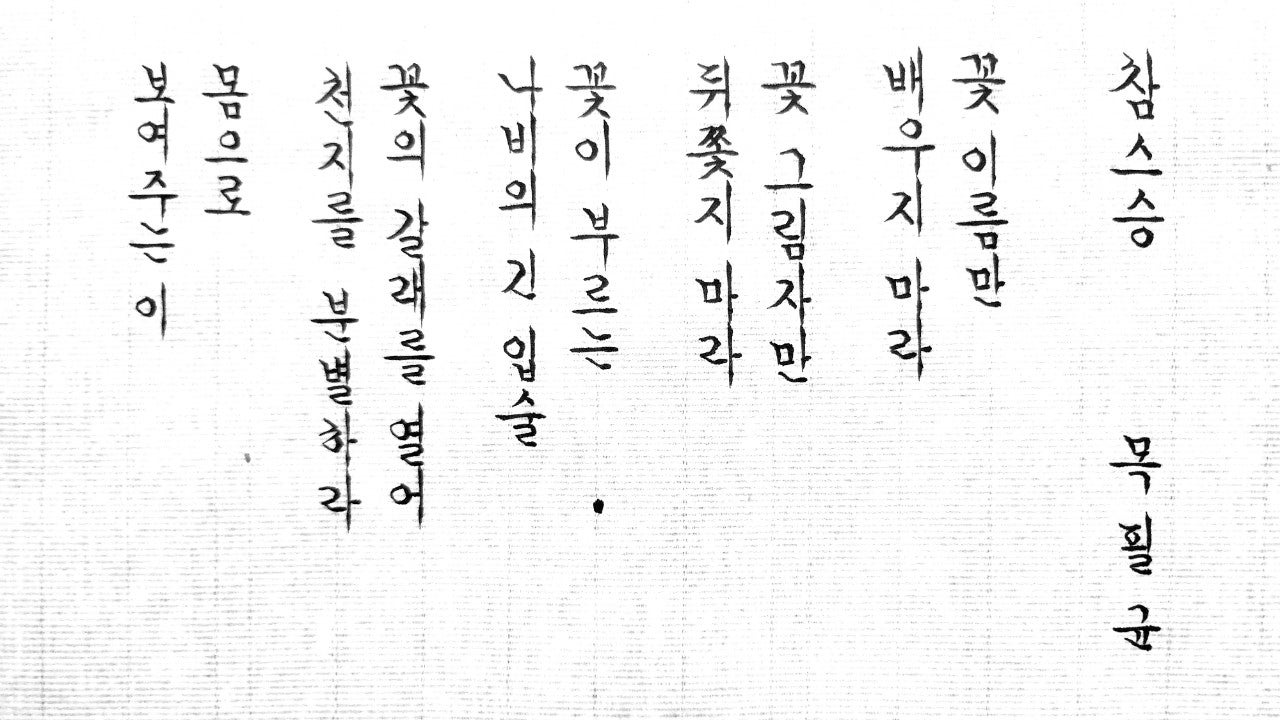 참스승 목필균
꽃 이름만
배우지 마라
꽃 그림자만
뒤쫓지 마라
꽃이 부르는
나비의 긴 입술
꽃의 갈래를 열어
천지를 분별하라
몸으로
보여주는 이